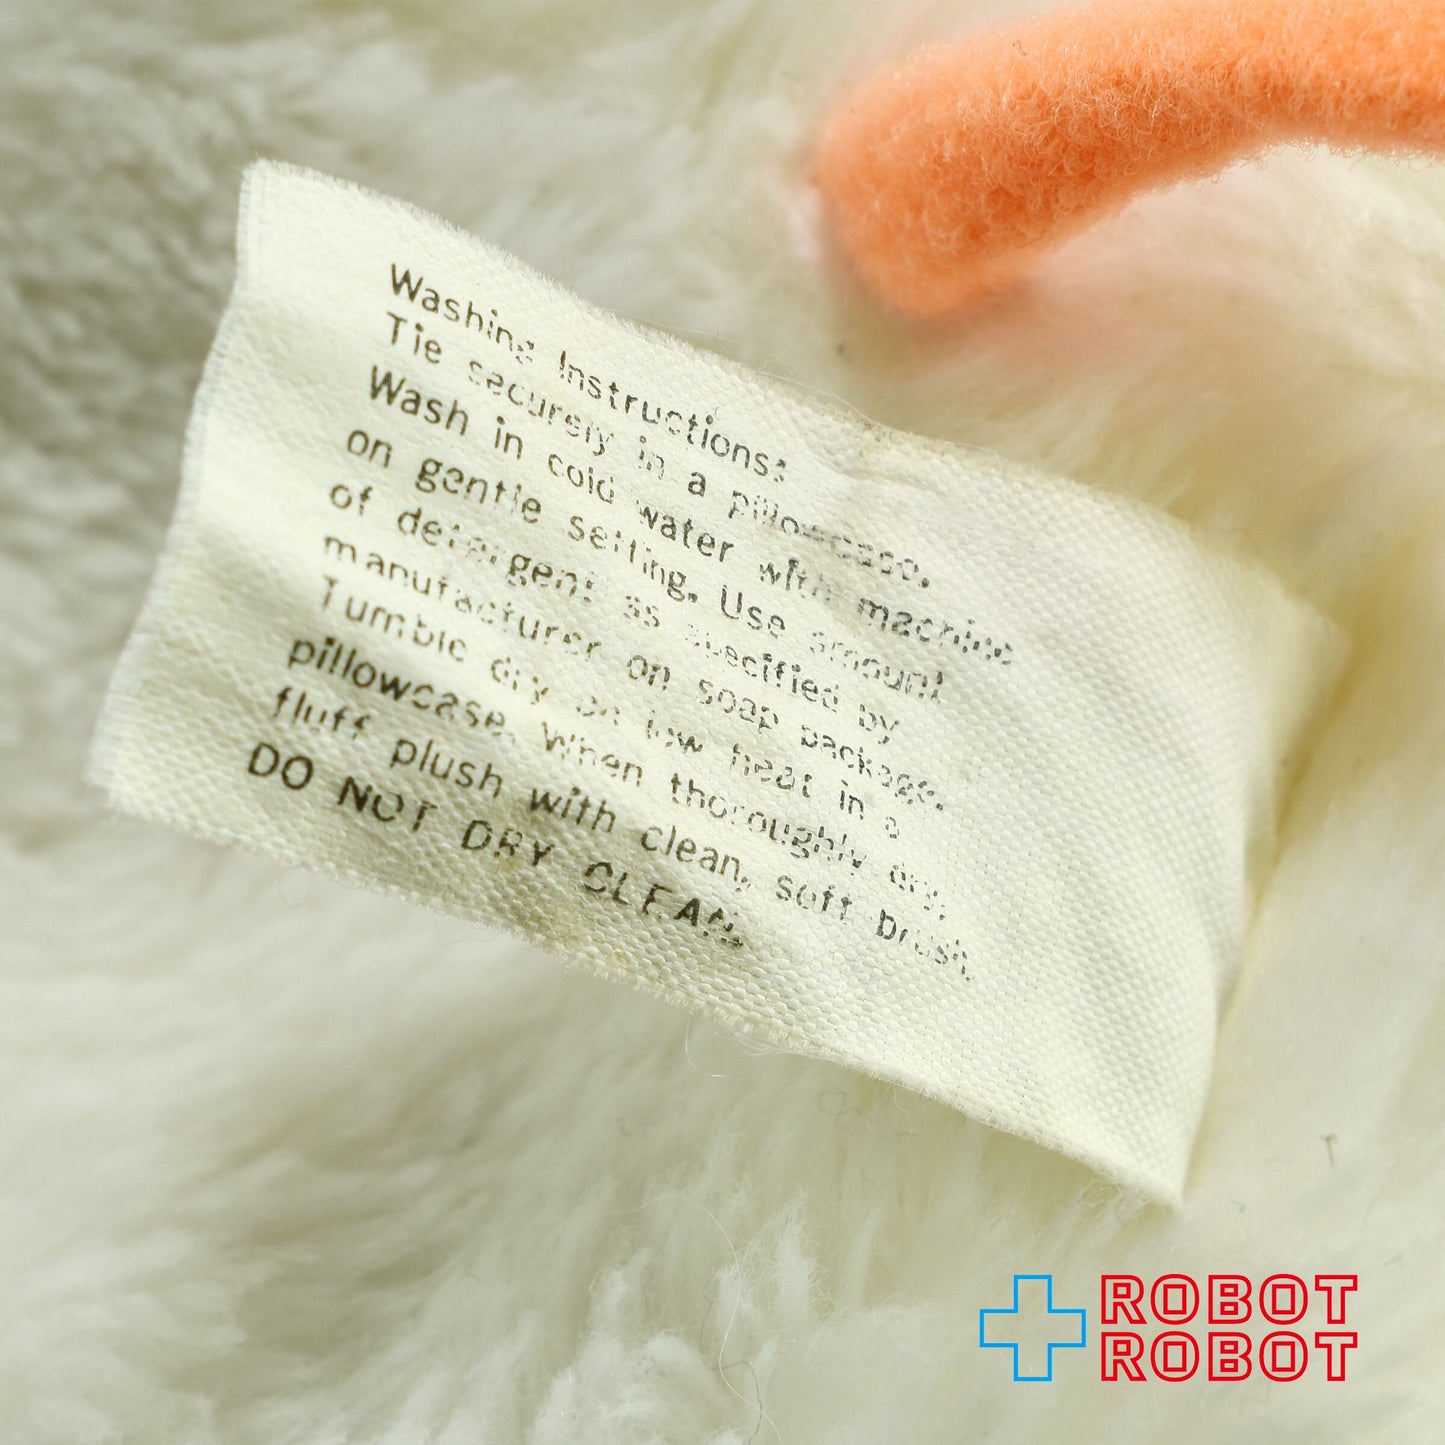 Washing Instructions:
Tie securely in a pillowcase.
Wash in cold water with machine
on gentle setting. Use amount
of detergent as specified by
manufacturer on soap package.
Tumble dry on low heat in a
pillowcase. When thoroughly dry,
fluff plush with clean, soft brush.
DO NOT DRY CLEAN.
ROBOT
ROBOT